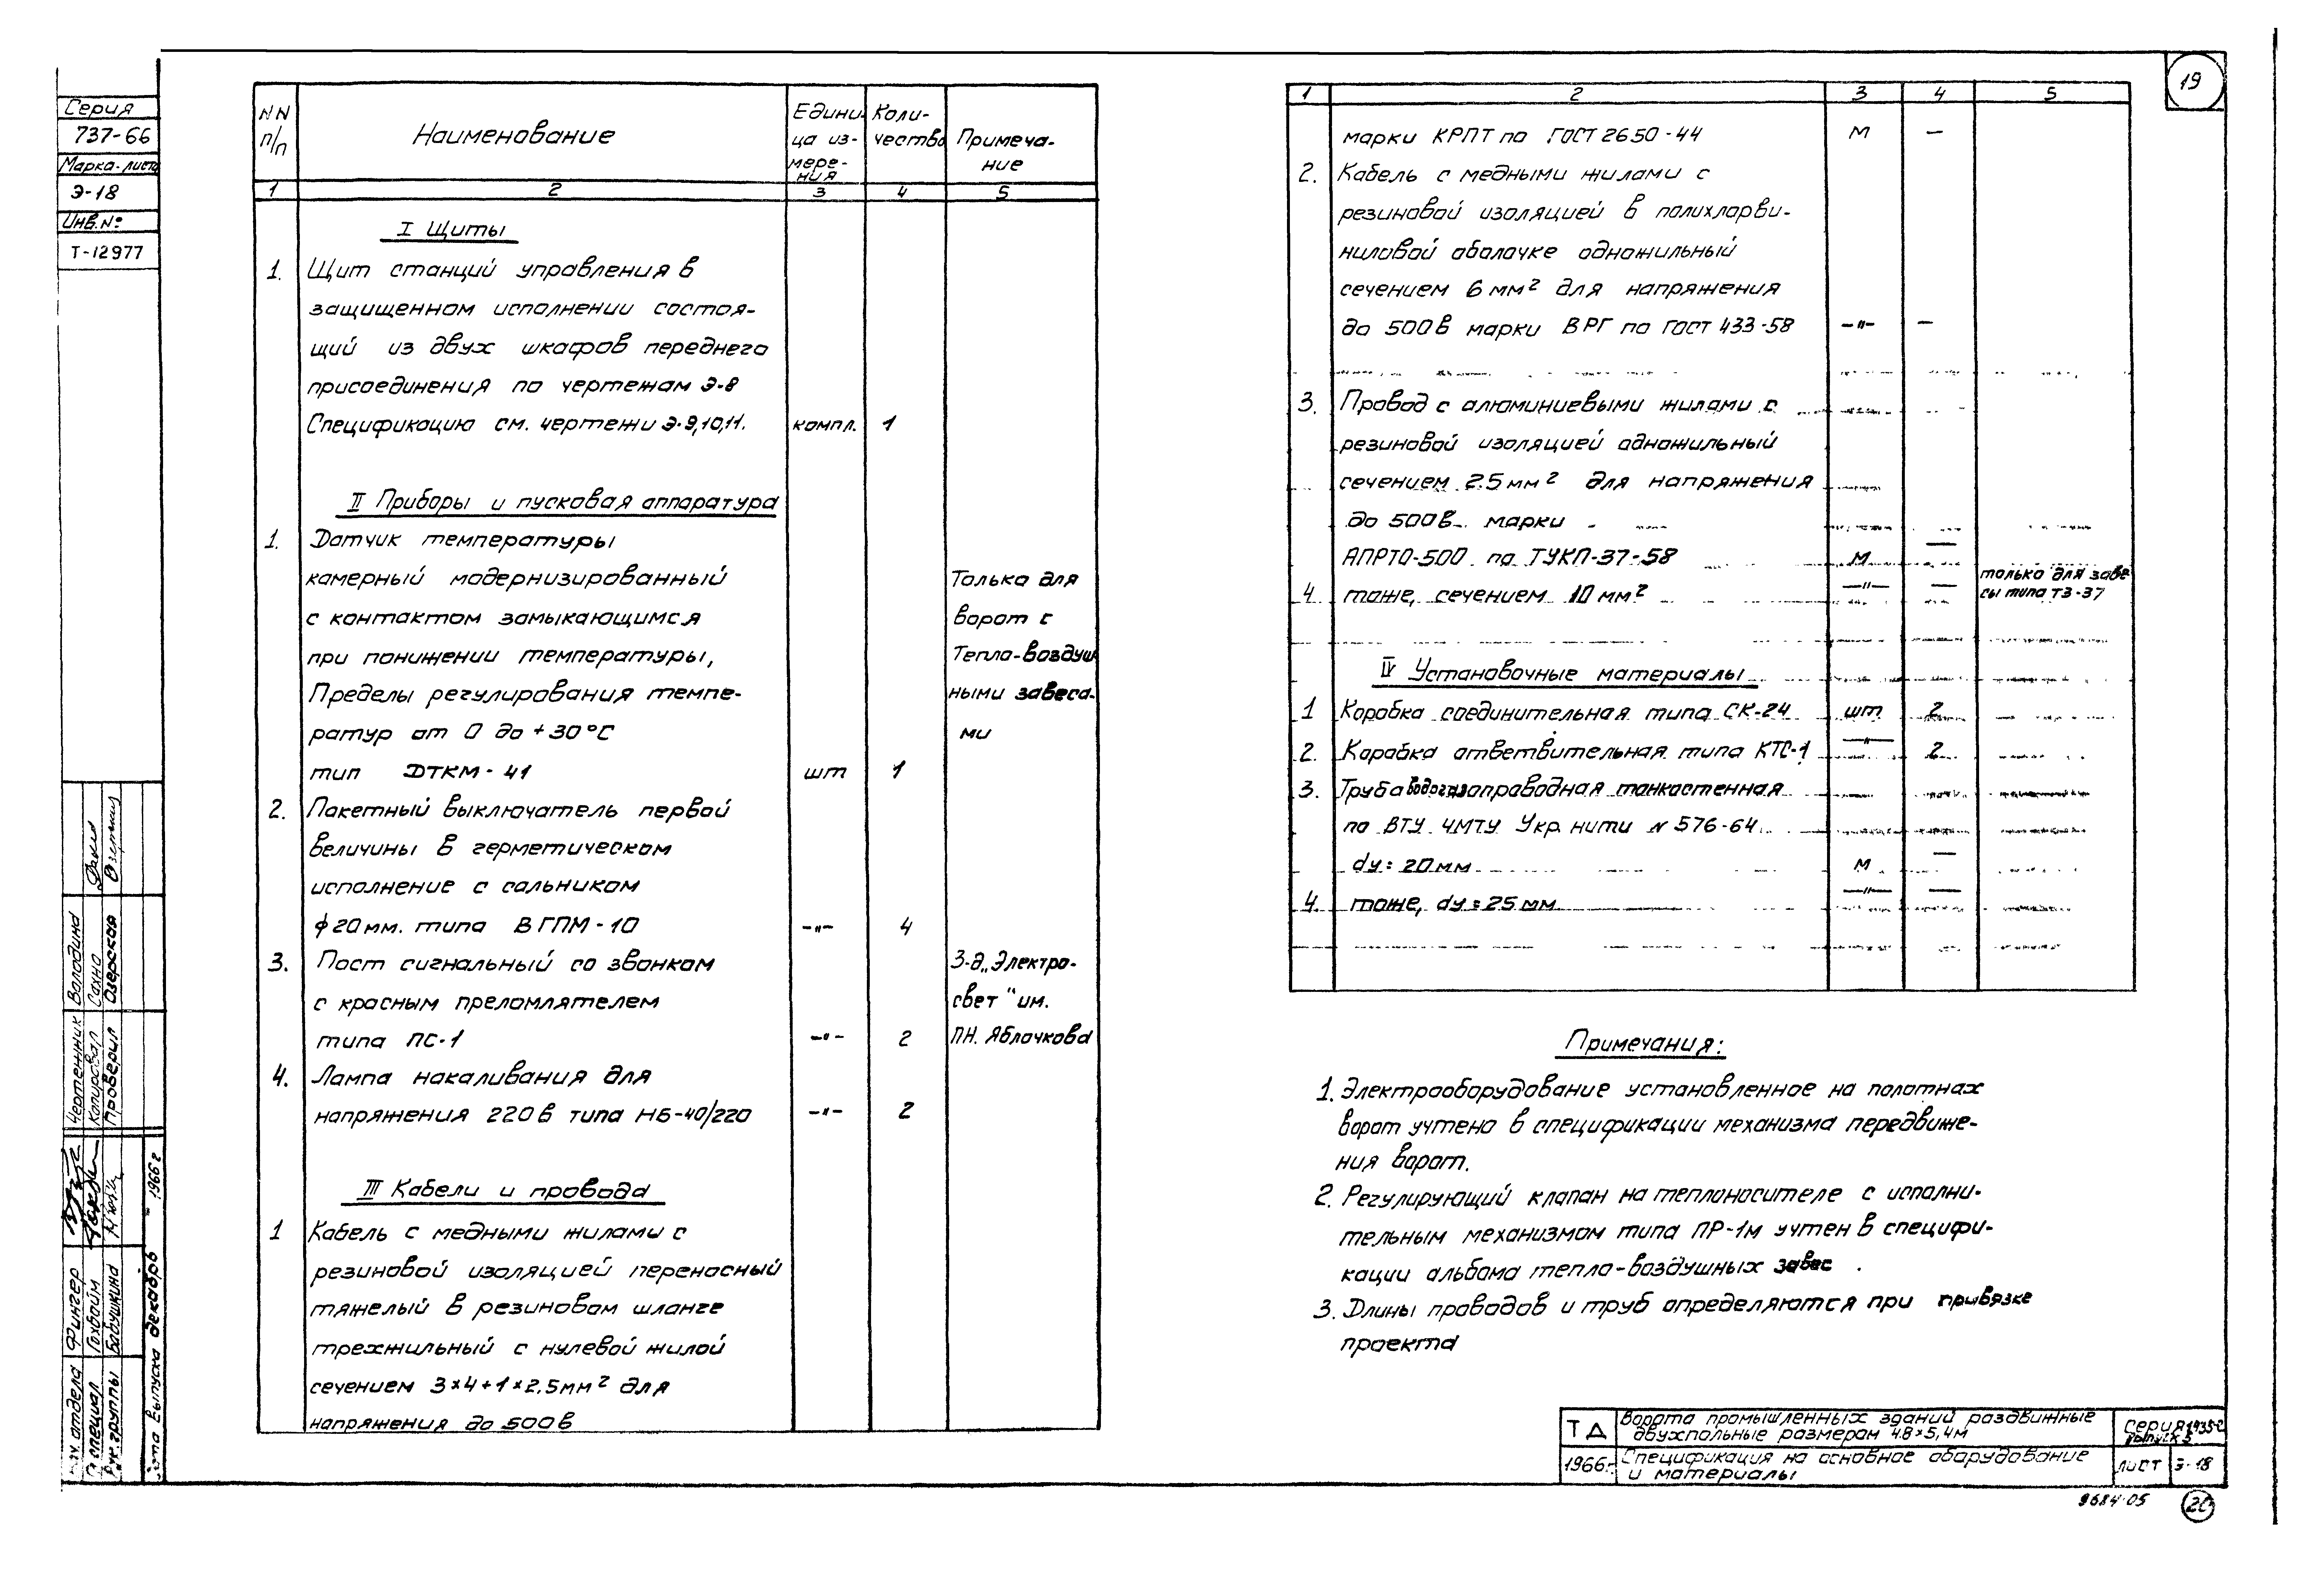 19
Серия
737-66
Марка-листа
Э-18
Инв.№
Т-12977
NN п/п
Наименование
Едини-
ца из-
мере-
ния
Коли-
чество
Примеча-
ние
1 2 3 4 5
I Щиты
1. Щит станций управления в
защищенном исполнении состоя-
щий из двух шкафов переднего
присоединения по чертежам Э-8
Спецификацию см. чертежи Э-9,10,11. компл. 1
II Приборы и пусковая аппаратура
1. Датчик температуры
камерный модернизированный Только для
с контактом замыкающимся ворот с
при понижении температуры, Тепло-воздуш
Пределы регулирования темпе- ными завеса-
ратур от 0 до +30°С ми
тип ДТКМ-41 шт 1
2. Пакетный выключатель первой
величины в герметическом
исполнение с сальником
ф20мм. типа ВГПМ-10 -"- 4
3. Пост сигнальный со звонком З-д „Электро-
с красным преломлятелем свет" им.
типа ПС-1 -"- 2 ПН. Яблочкова
4. Лампа накаливания для
напряжения 220в типа НБ-40/220 -"- 2
III Кабели и провода
1 Кабель с медными жилами с
резиновой изоляцией переносный
тяжелый в резиновом шланге
трехжильный с нулевой жилой
сечением 3×4+1×2.5мм² для
напряжения до 500в
1 2 3 4 5
марки КРПТ по ГОСТ 2650-44 м —
2. Кабель с медными жилами с
резиновой изоляцией в полихлорви-
ниловой оболочке одножильный
сечением 6мм² для напряжения
до 500в марки ВРГ по ГОСТ 433-58 -"- —
3. Провод с алюминиевыми жилами с
резиновой изоляцией одножильный
сечением 2.5мм² для напряжения
до 500в марки
АПРТО-500 по ТУКП-37-58 м —
4. тоже, сечением 10мм² -"- — только для заве
сы типа ТЗ-37
IV Установочные материалы
1 Коробка соединительная типа СК-24 шт 2
2. Коробка ответвительная типа КТС-1 -"- 2
3. Труба водогазопроводная тонкостенная
по ВТУ ЧМТУ Укр. нити N 576-64
dу=20мм м —
4. тоже, dу=25мм -"- —
Примечания:
1. Электрооборудование установленное на полотнах
ворот учтено в спецификации механизма передвиже-
ния ворот.
2. Регулирующий клапан на теплоносителе с исполни-
тельным механизмом типа ПР-1м учтен в специфи-
кации альбома тепло-воздушных завес.
3. Длины проводов и труб определяются при привязке
проекта
ТД
1966г.
Ворота промышленных зданий раздвижные
двухпольные размером 4.8×5,4м
Спецификация на основное оборудование
и материалы
Серия 1.435-2
выпуск 5
лист Э-18
9684-05 20
Нач. отдела Фингер
Гл специал Гохвойм
Рук. группы Бабушкина
Дата выпуска декабрь - 1966г
Чертежник Володина
Копировал
Проверил Озерская